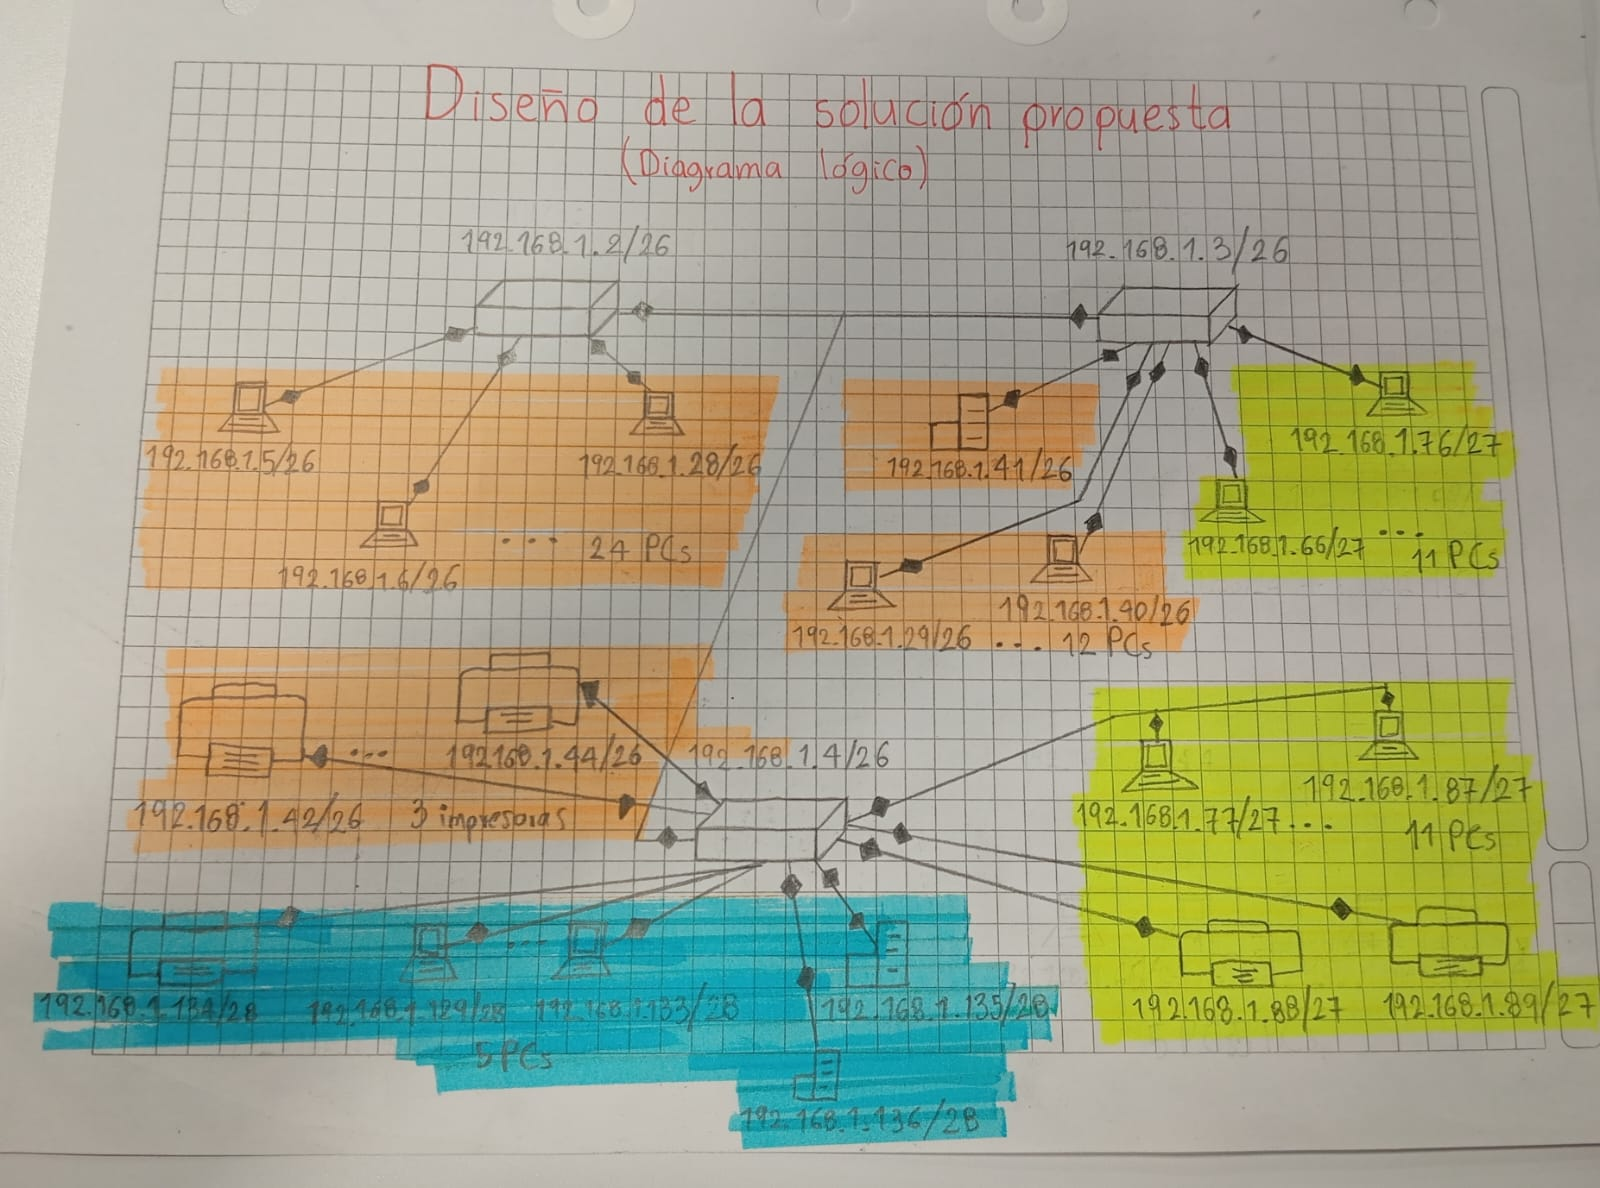 Diseño de la solución propuesta
(Diagrama lógico)
192.168.1.2/26
192.168.1.3/26
192.168.1.5/26
192.168.1.28/26
192.168.1.6/26
... 24 PCs
192.168.1.41/26
192.168.1.76/27
192.168.1.66/27 ... 11 PCs
192.168.1.29/26 ... 12 PCs
192.168.1.40/26
...
192.168.1.44/26
192.168.1.42/26 3 impresoras
192.168.1.4/26
192.168.1.87/27
192.168.1.77/27 ... 11 PCs
192.168.1.88/27
192.168.1.89/27
...
192.168.1.134/28
192.168.1.129/28
192.168.1.133/28
5 PCs
192.168.1.135/28
192.168.1.136/28